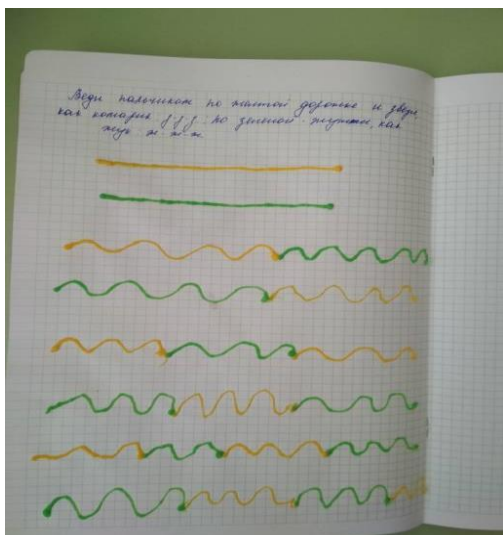 Веди пальчиком по желтой дорожке и звени,
как комарик з-з-з; по зеленой - жужжи, как
жук ж-ж-ж